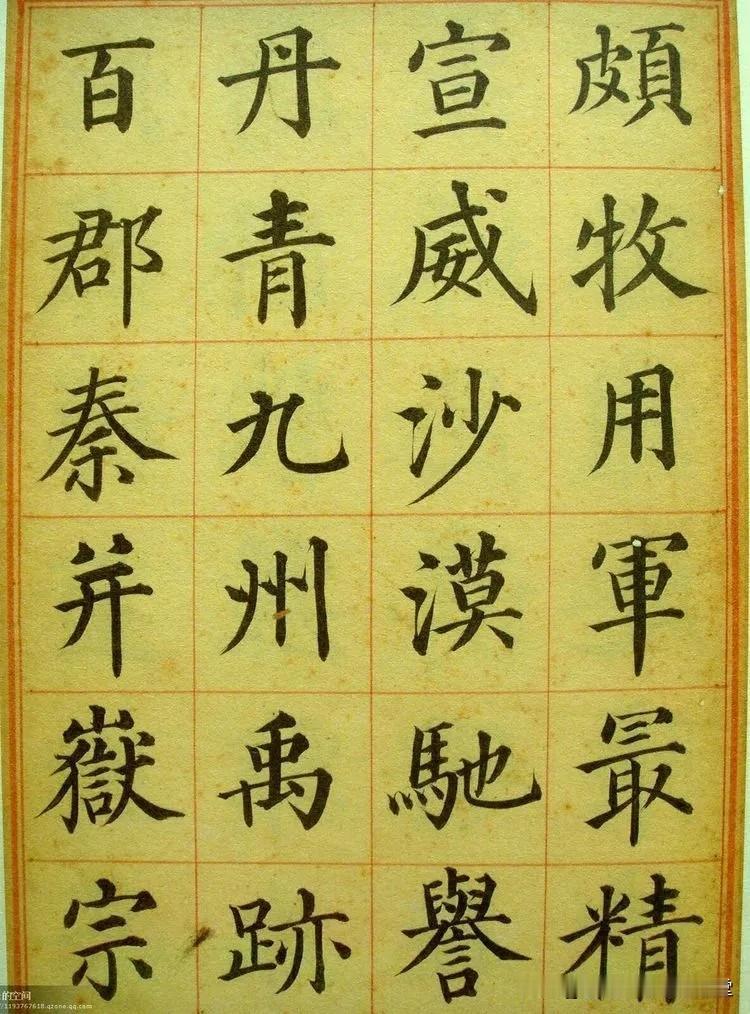 頗牧用軍最精
宣威沙漠馳譽
丹青九州禹跡
百郡秦并嶽宗
的空间
1193767618.qzone.qq.com